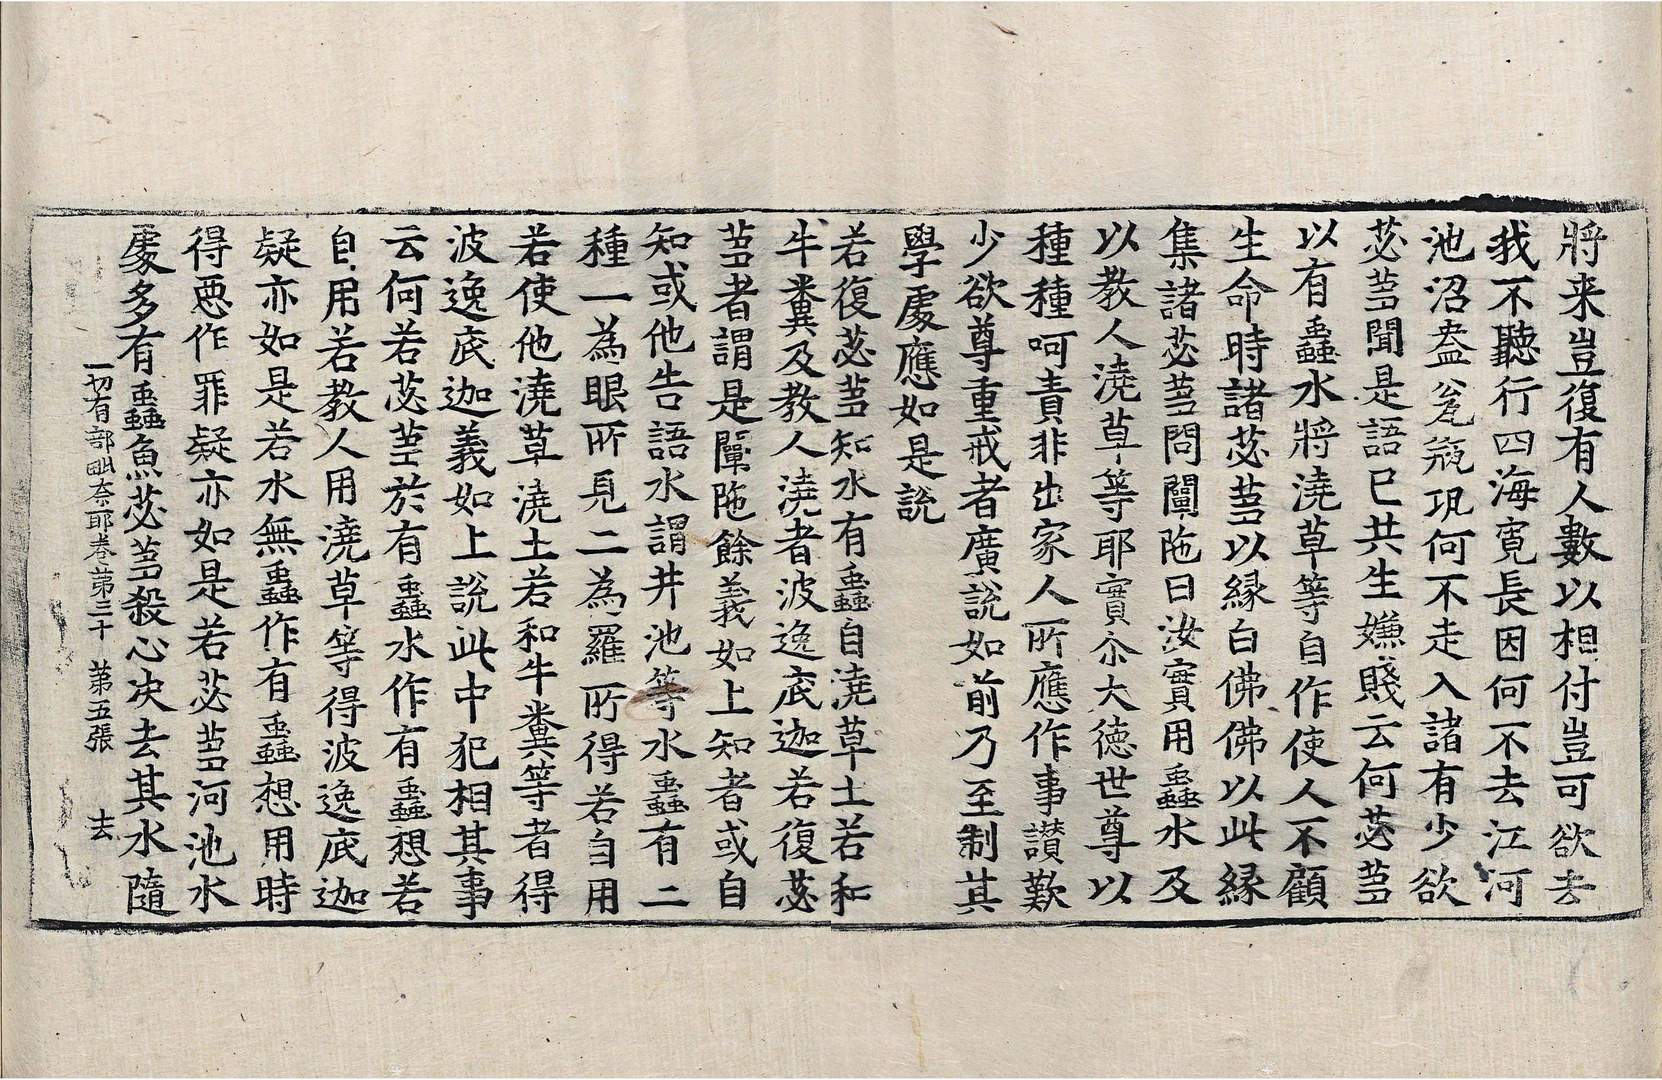 將来豈復有人數以相付豈可欲去
我不聽行四海寛長因何不去江河
池沼盎瓮瓶瓨何不走入諸有少欲
苾芻聞是語已共生嫌賤云何苾芻
以有蟲水將澆草等自作使人不顧
生命時諸苾芻以縁白佛佛以此縁
集諸苾芻問闡陁曰汝實用蟲水及
以教人澆草等耶實尒大德世尊以
種種呵責非出家人所應作事讃歎
少欲尊重戒者廣說如前乃至制其
學處應如是說
若復苾芻知水有蟲自澆草土若和
牛糞及教人澆者波逸底迦若復苾
芻者謂是闡陁餘義如上知者或自
知或他告語水謂井池等水蟲有二
種一為眼所見二為羅所得若自用
若使他澆草澆土若和牛糞等者得
波逸底迦義如上說此中犯相其事
云何若苾芻於有蟲水作有蟲想若
自用若教人用澆草等得波逸底迦
疑亦如是若水無蟲作有蟲想用時
得惡作罪疑亦如是若苾芻河池水
處多有蟲魚苾芻殺心决去其水隨
一切有部毗奈耶卷第三十 第五張 去